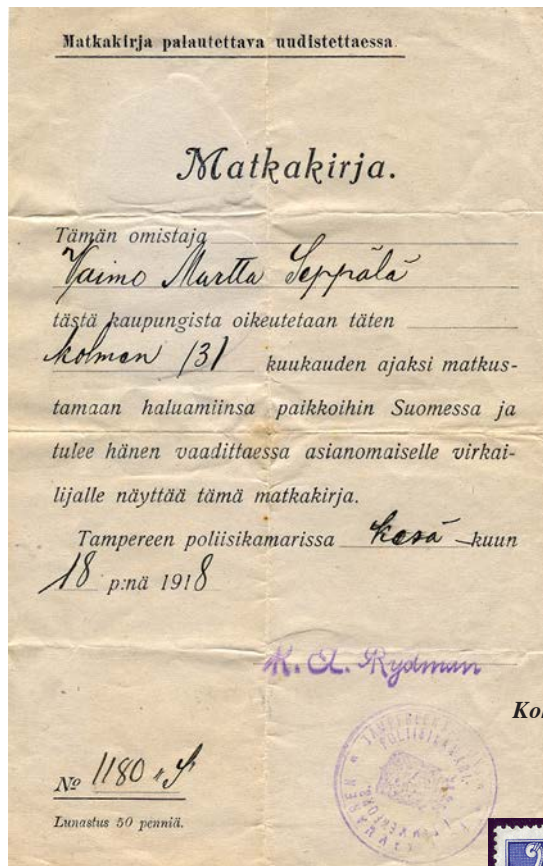 Matkakirja palautettava uudistettaessa.
Matkakirja.
Tämän omistaja
Vaimo Martta Seppälä
tästä kaupungista oikeutetaan täten
kolmen (3) kuukauden ajaksi matkus-
tamaan haluamiinsa paikkoihin Suomessa ja
tulee hänen vaadittaessa asianomaiselle virkai-
lijalle näyttää tämä matkakirja.
Tampereen poliisikamarissa kesä-kuun
18 p:nä 1918
K. A. Rydman
№ 1180
Lunastus 50 penniä.